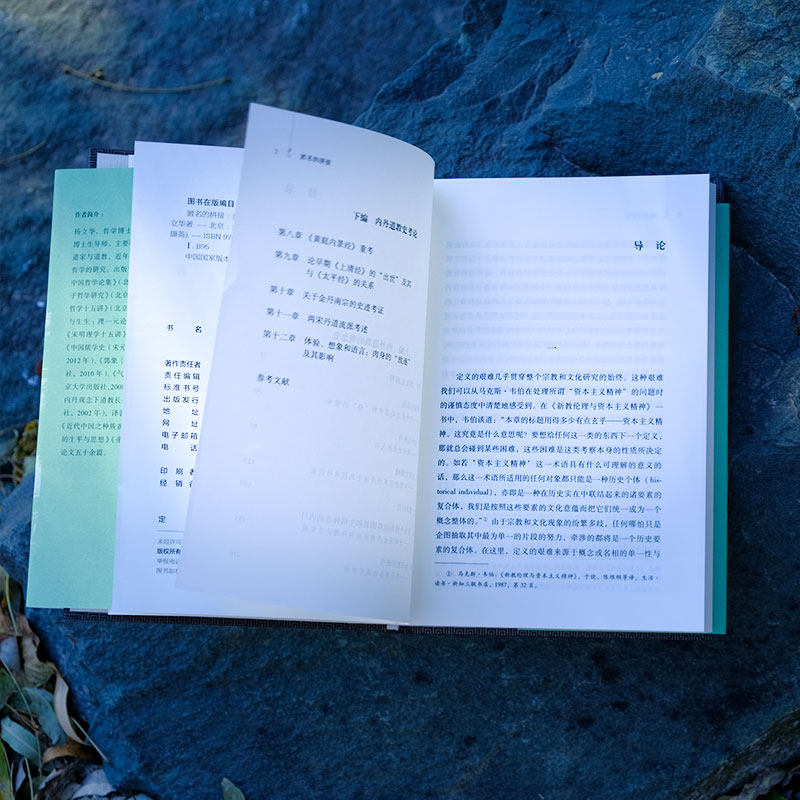 作者简介：
杨立华，哲学博士
博士生导师，主要
道家与道教，近年
哲学的研究。出版
中国哲学论集》（北京
子哲学研究》（北京
哲学十五讲》（北京
与生生：理一元论
《宋明理学十五讲》
《中国儒学史（宋元
2012年）、《郭象《
社，2010年）、《气
京大学出版社，2008
内丹观念下道教长
社，2002年），译著
《近代中国之种族
的生平与思想》《章
论文五十余篇。
图书在版编目
匿名的拼接：
立华著．—北京：
撷英）．—ISBN 97
Ⅰ．B95
中国国家版本
书 名
著作责任者
责任编辑
标准书号
出版发行
地 址
网 址
电子邮箱
电 话
印刷者
经销者
定
未经许可
版权所有
举报电话
图书如有
2 匿名的拼接
下编 内丹道教史考论
第八章 《黄庭内景经》重考
第九章 论早期《上清经》的“出世”及其
与《太平经》的关系
第十章 关于金丹南宗的史迹考证
第十一章 两宋内丹道流派考述
第十二章 体验、想象和语言：肉身的“故道”
及其影响
参考文献
导 论
一
定义的艰难几乎贯穿整个宗教和文化研究的始终。这种艰难
我们可以从马克斯·韦伯在处理所谓“资本主义精神”的问题时
的谨慎态度中清楚地感受到。在《新教伦理与资本主义精神》一
书中，韦伯谈道：“本章的标题用得多少有点玄乎——资本主义精
神。这究竟是什么意思呢？要想给任何这一类的东西下一个定义，
那就总会碰到某些困难，这些困难是这类考察本身的性质所决定
的。如若‘资本主义精神’这一术语具有什么可理解的意义的
话，那么这一术语所适用的任何对象都只能是一种历史个体（his-
torical individual），亦即是一种在历史实在中联结起来的诸要素的
复合体，我们是按照这些要素的文化意蕴而把它们统一成为一个
概念整体的。”① 由于宗教和文化现象的纷繁多歧，任何哪怕只是
企图抽取其中最为单一的片段的努力，牵涉的都将是一个历史要
素的复合体。在这里，定义的艰难来源于概念或名相的单一性与
① 马克斯·韦伯：《新教伦理与资本主义精神》，于晓、陈维纲等译，生活·
读书·新知三联书店，1987，第32页。